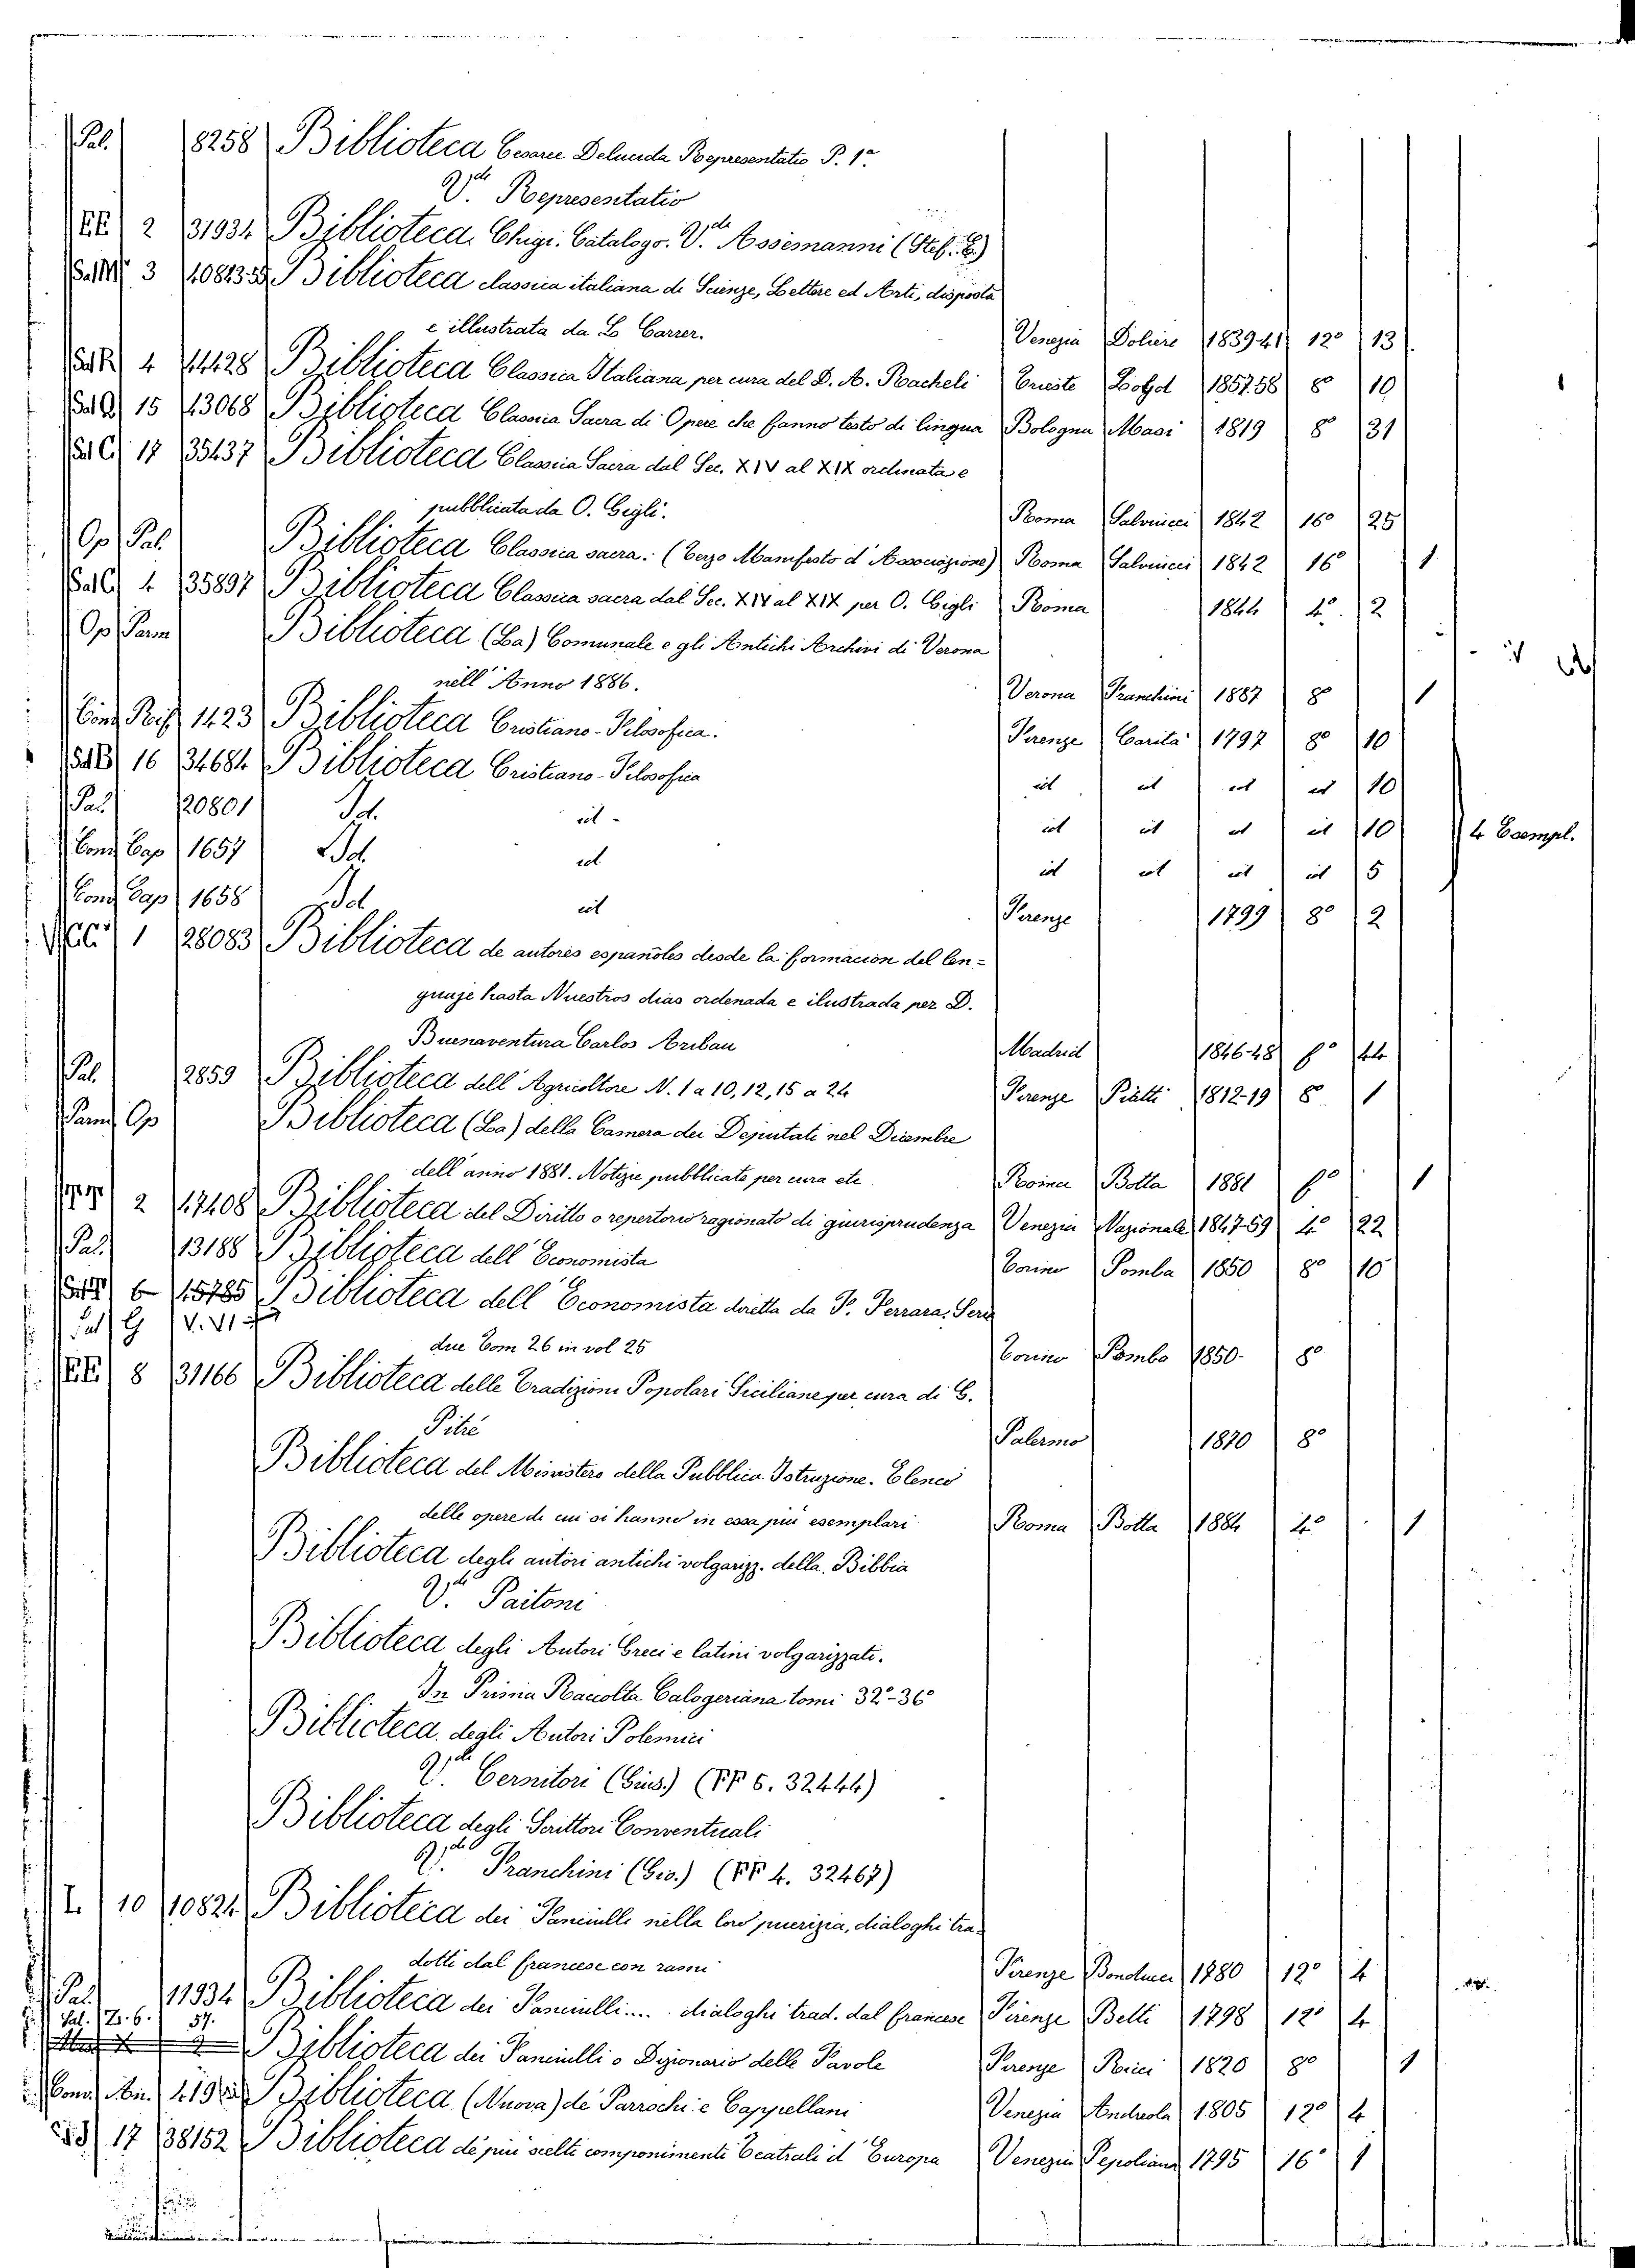 Pal. 8258 Biblioteca Cesaree Delucida Representatio P. 1ª
V.de Representatio
EE 2 31934 Biblioteca. Chigi. Catalogo. V.de Assemanni (Stef. E.)
3 Biblioteca classica italiana di Scienze, Lettere ed Arti, disposta
e illustrata da L. Carrer. Venezia 1839-41 12º 13
4 14428 Biblioteca Classica Italiana per cura del D. A. Racheli Trieste Lloyd 1857-58 8º 10
15 13068 Biblioteca Classica Sacra di Opere che fanno testo di lingua Bologna Masi 1819 8º 31
Sal C 17 35437 Biblioteca Classica Sacra dal Sec. XIV al XIX ordinata e
pubblicata da O. Gigli. Roma Salviucci 1842 16º 25
Op Pal Biblioteca Classica sacra. (Terzo Manifesto d'Associazione) Roma Salviucci 1842 16º 1
Sal C 4 35897 Biblioteca Classica sacra dal Sec. XIV al XIX per O. Gigli Roma 1844 4º. 2
Op Parm Biblioteca (La) Comunale e gli Antichi Archivi di Verona
nell'Anno 1886. Verona Franchini 1887 8º 1
Cons Rif 1423 Biblioteca Cristiano-Filosofica. Firenze Carità 1797 8º 10
Sal B 16 34684 Biblioteca Cristiano-Filosofica id id id id 10
Pal 20801 Id. id - id id id id 10 4 Esempl.
Cons Cap 1657 Id id id id id id 5
Cons Cap 1658 Id id Firenze 1799 8º 2
1 28083 Biblioteca de autores españoles desde la formacion del len=
guaje hasta Nuestros dias ordenada e ilustrada per D.
Buenaventura Carlos Aribau Madrid 1846-48 8º 44
Pal. 2859 Biblioteca dell'Agricoltore N. 1 a 10, 12, 15 a 24 Firenze Piatti 1812-19 8º 1
Parm Op Biblioteca (La) della Camera dei Deputati nel Dicembre
dell'anno 1881. Notizie pubblicate per cura etc. Roma Botta 1881 8º 1
2 17408 Biblioteca del Diritto o repertorio ragionato di giurisprudenza Venezia Nazionale 1847-59 4º 22
Pal. 13188 Biblioteca dell'Economista Torino Pomba 1850 8º 10
6 15785 Biblioteca dell'Economista diretta da F. Ferrara. Serie
Pal G V. VI
due Tom 26 in vol 25 Torino Pomba 1850- 8º
EE 8 31166 Biblioteca delle Tradizioni Popolari Siciliane per cura di G.
Pitrè Palermo 1870 8º
Biblioteca del Ministero della Pubblica Istruzione. Elenco
delle opere di cui si hanno in essa più esemplari Roma Botta 1884 4º 1
Biblioteca degli autori antichi volgarizz. della Bibbia
V.de Paitoni
Biblioteca degli Autori Greci e latini volgarizzati.
In Prima Raccolta Calogeriana tomi 32º-36º
Biblioteca degli Autori Polemici
V.de Cernitori (Gius.) (FF 6. 32444)
Biblioteca degli Scrittori Conventuali
V.de Franchini (Gio.) (FF 4. 32467)
I. 10 10824 Biblioteca dei Fanciulli nella loro puerizia, dialoghi tra=
dotti dal francese con rami Firenze Bonducci 1780 12º 4
Pal. 11934 Biblioteca dei Fanciulli.... dialoghi trad. dal francese Firenze Belli 1798 12º 4
Pal. Z. 6. 57.
Biblioteca dei Fanciulli o Dizionario delle Parole Firenze Ricci 1820 8º 1
Cons. Biblioteca (Nuova) de' Parrochi e Cappellani Venezia Andreola 1805 12º 4
17 38152 Biblioteca de' più scelti componimenti Teatrali d'Europa Venezia Pepoliana 1795 16º 1